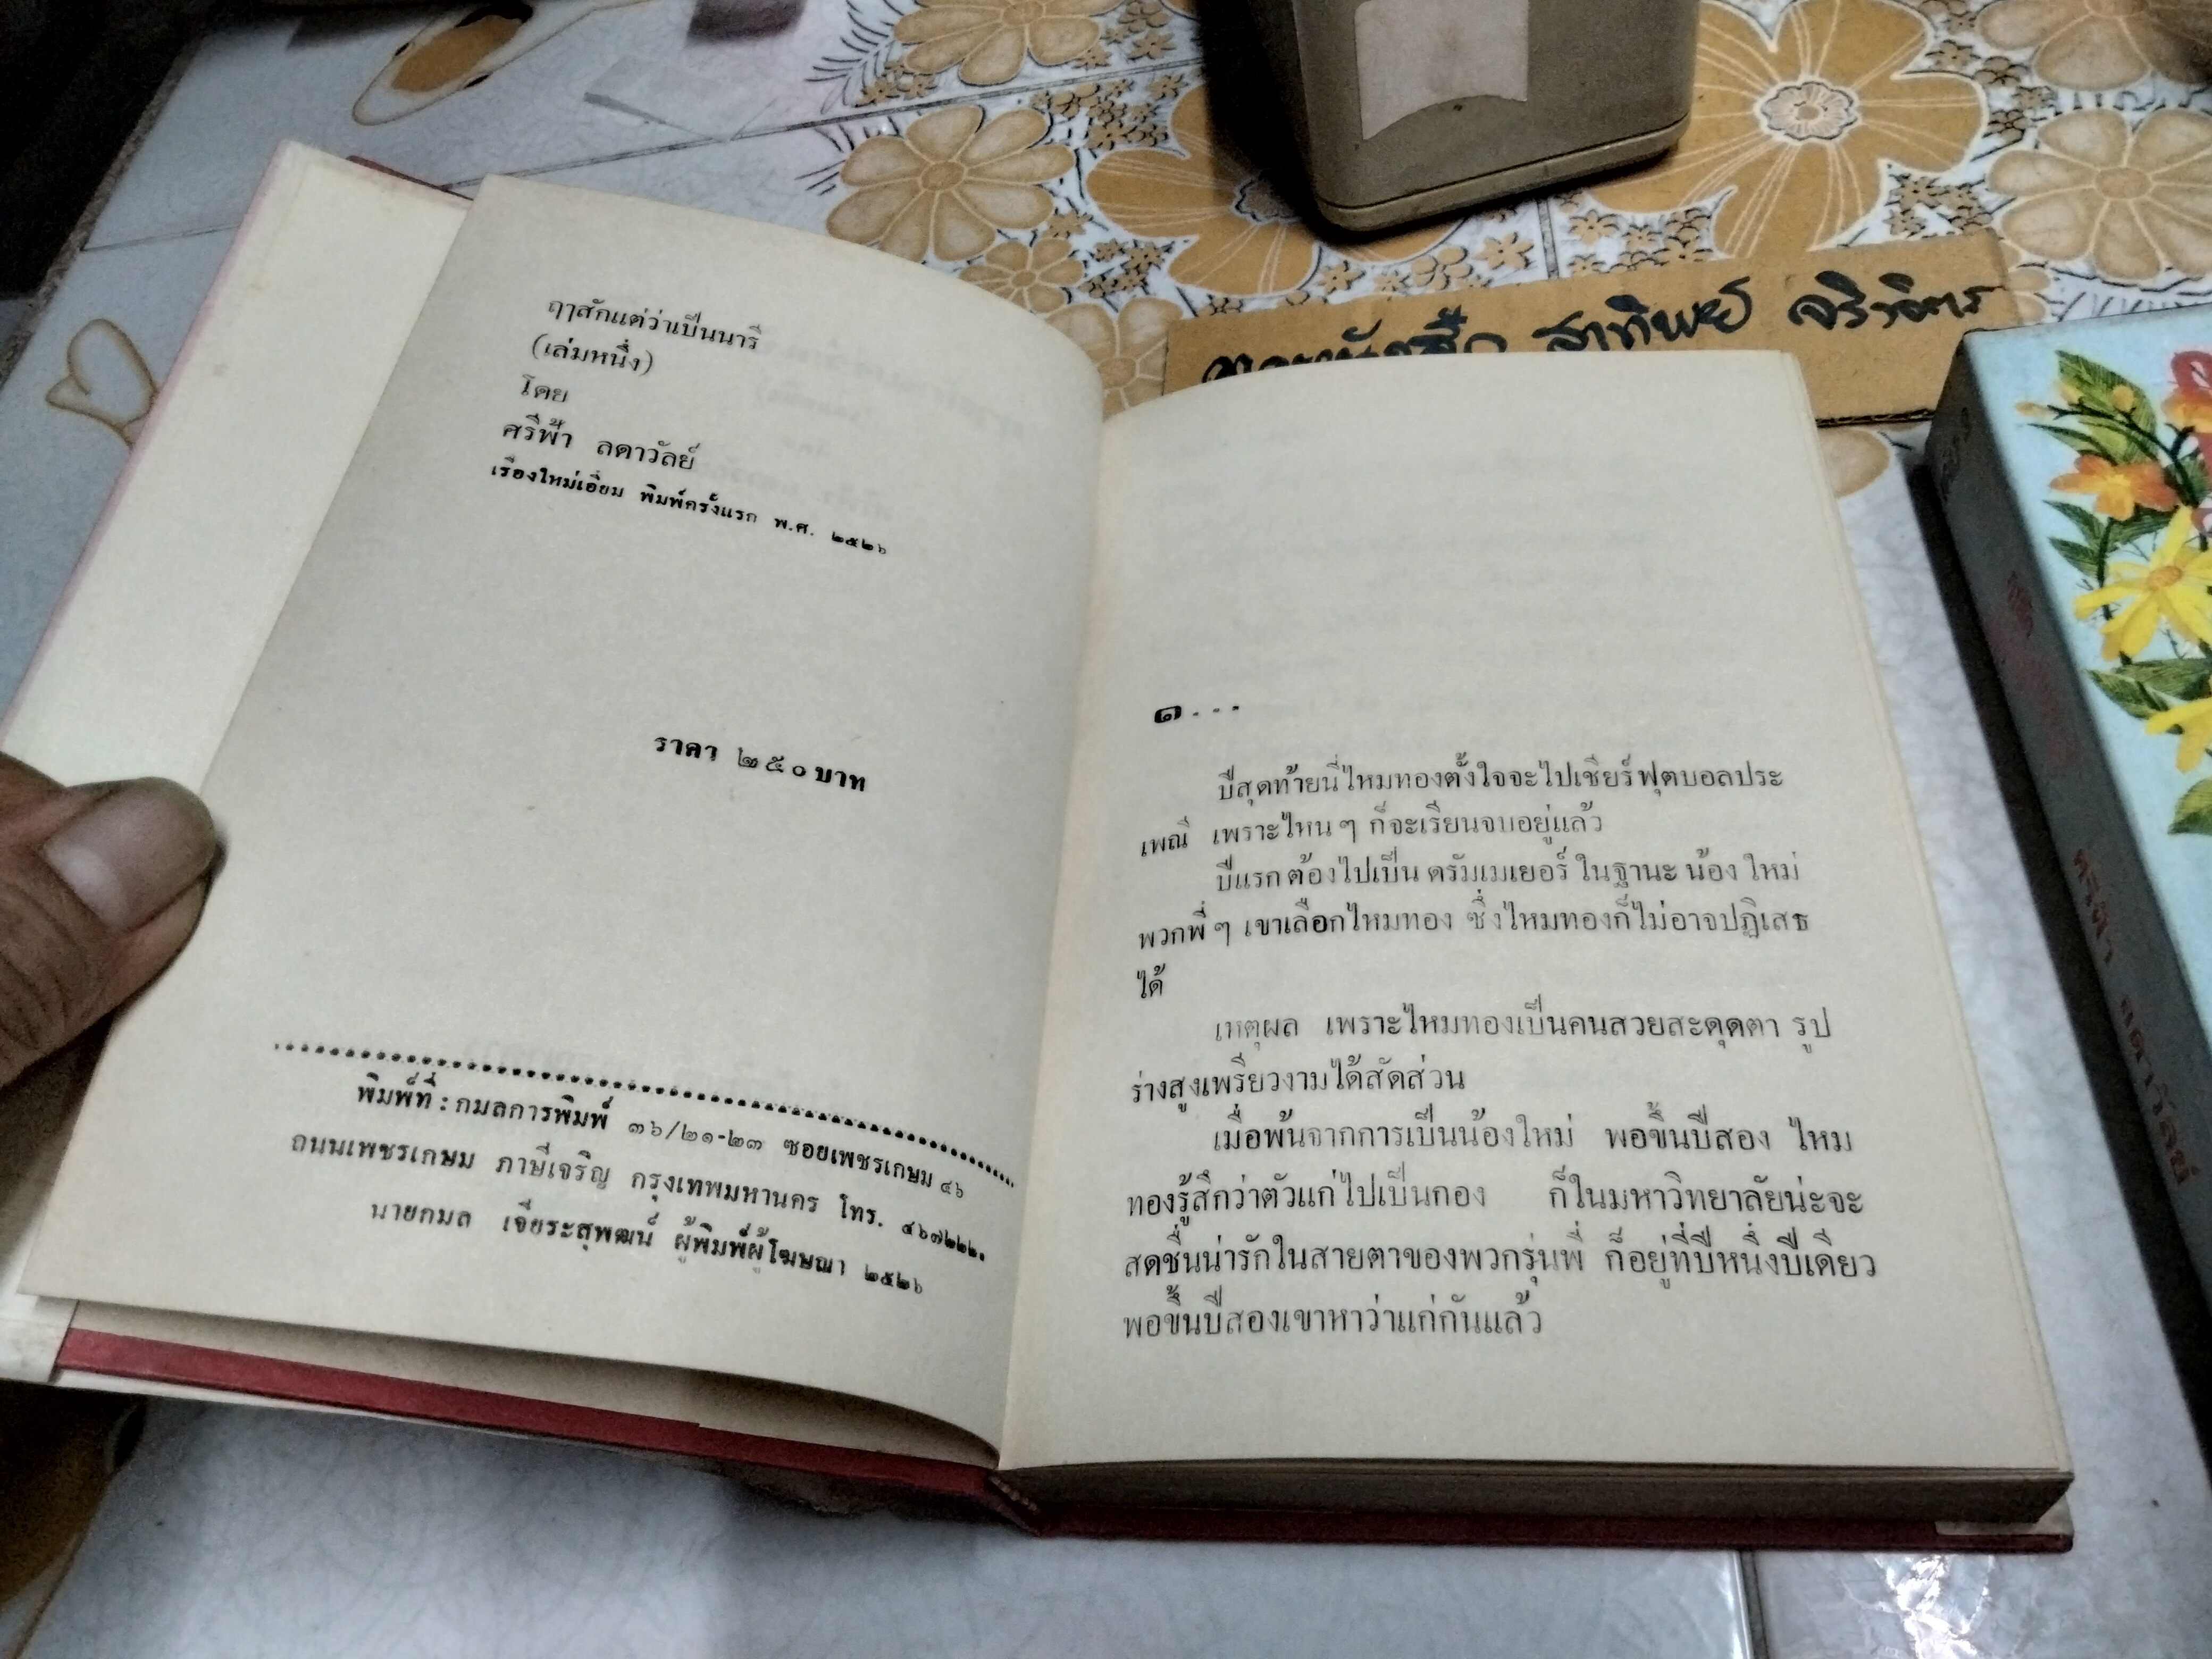 ฤๅสักแต่ว่าเป็นนารี
(เล่มหนึ่ง)
โดย
ศรีฟ้า ลดาวัลย์
เรื่องใหม่เอี่ยม พิมพ์ครั้งแรก พ.ศ. ๒๕๒๖
ราคา ๒๕๐ บาท
พิมพ์ที่ : กมลการพิมพ์ ๓๖/๒๑-๒๓ ซอยเพชรเกษม ๔๖
ถนนเพชรเกษม ภาษีเจริญ กรุงเทพมหานคร โทร. ๔๖๗๒๒๒.
นายกมล เจียระสุพฒน์ ผู้พิมพ์ผู้โฆษณา ๒๕๒๖
๑...
ปีสุดท้ายนี้ไหมทองตั้งใจจะไปเชียร์ฟุตบอลประ
เพณี เพราะไหน ๆ ก็จะเรียนจบอยู่แล้ว
ปีแรกต้องไปเป็น ดรัมเมเยอร์ ในฐานะ น้อง ใหม่
พวกพี่ ๆ เขาเลือกไหมทอง ซึ่งไหมทองก็ไม่อาจปฏิเสธ
ได้
เหตุผล เพราะไหมทองเป็นคนสวยสะดุดตา รูป
ร่างสูงเพรียวงามได้สัดส่วน
เมื่อพ้นจากการเป็นน้องใหม่ พอขึ้นปีสอง ไหม
ทองรู้สึกว่าตัวแก่ไปเป็นกอง ก็ในมหาวิทยาลัยน่ะจะ
สดชื่นน่ารักในสายตาของพวกรุ่นพี่ ก็อยู่ที่ปีหนึ่งปีเดียว
พอขึ้นปีสองเขาหาว่าแก่กันแล้ว
สาทิพย์ จริงจิตร
ศรีฟ้า ลดาวัลย์